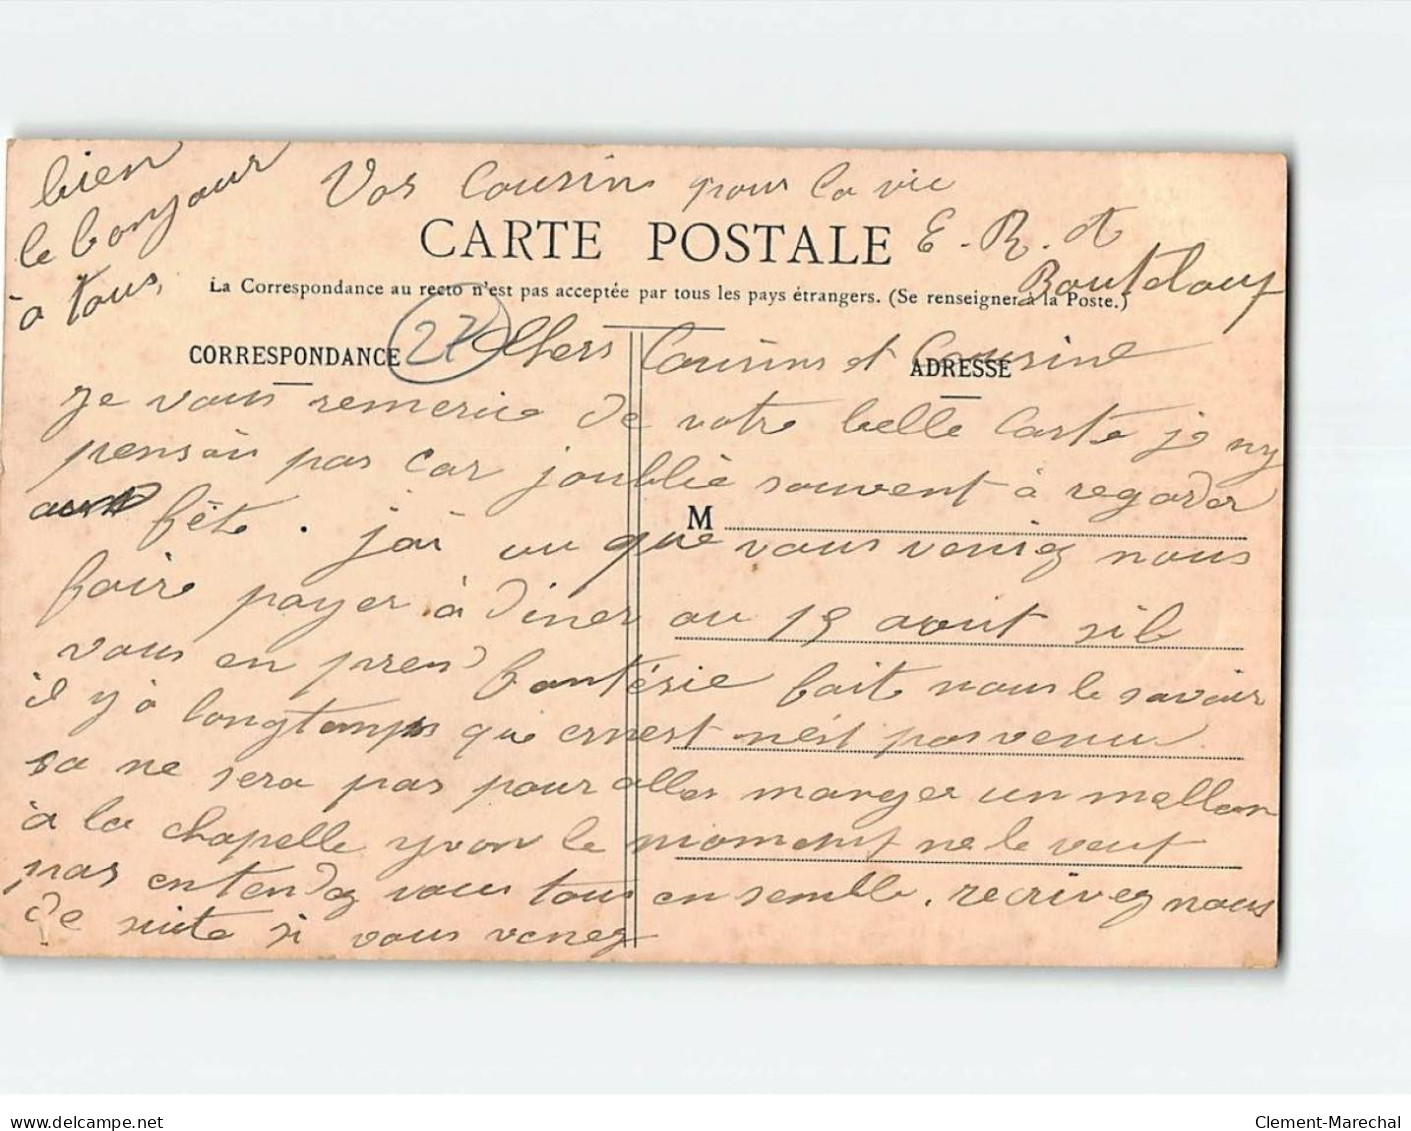 bien
le bonjour
à tous,
Vos Cousin pour la vie
E. R. et
CARTE POSTALE
La Correspondance au recto n'est pas acceptée par tous les pays étrangers. (Se renseigner à la Poste.)
CORRESPONDANCE
27
ADRESSE
Chers Cousins et Cousine
je vous remercie de votre belle carte je ny
pensais pas car joublie souvent à regarder
fête. jai vu que vous veniez nous
M
faire payer à diner au 15 avout sil
vous en prend fantésie faite nous le savoir
il y à longtamps que ernest nést pas venu
sa ne sera pas pour aller manger un mellon
à la chapelle yvon le moment ne le veut
pas entendez vous tous ensemble. recrivez nous
de suite si vous venez
delcampe.net
Clement-Marechal